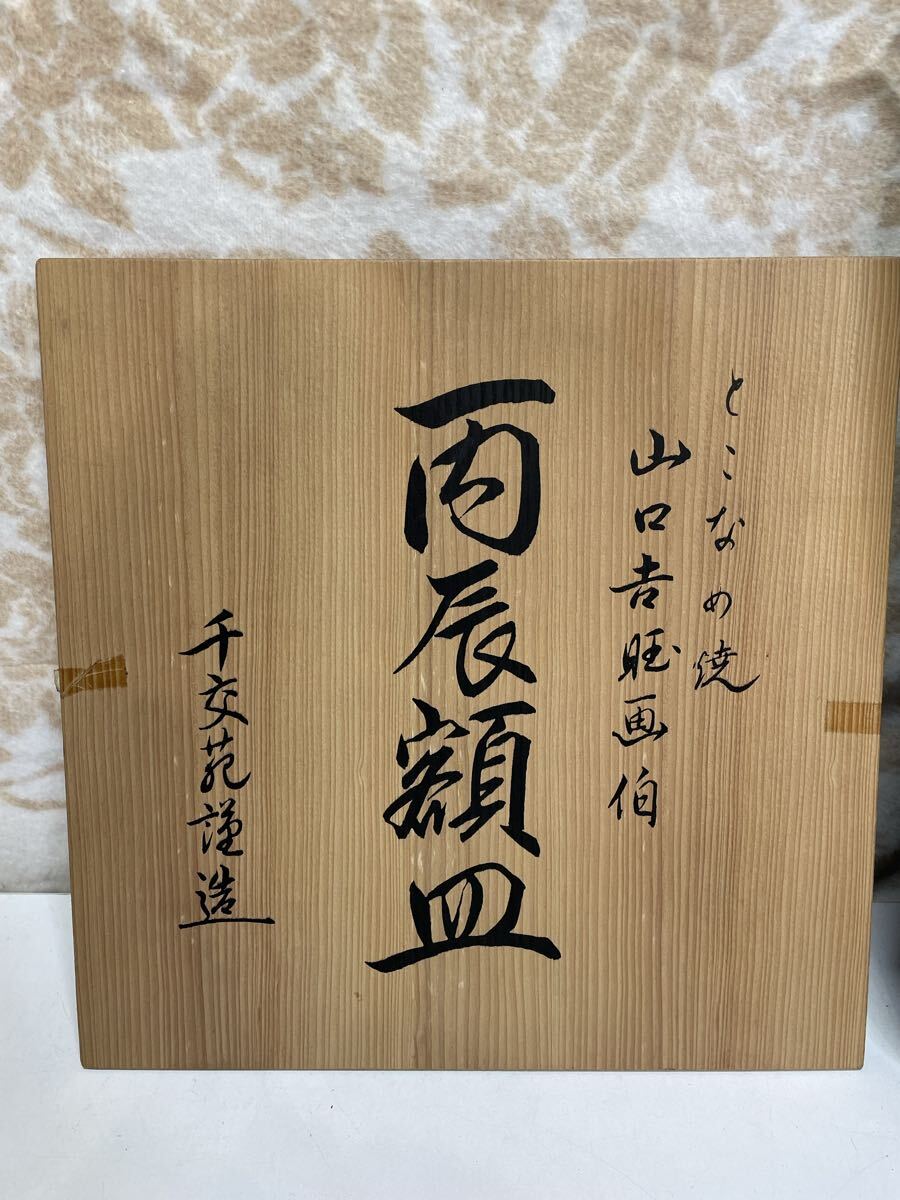 とこなめ焼
山口吉旺画伯
丙辰額皿
千交苑謹造